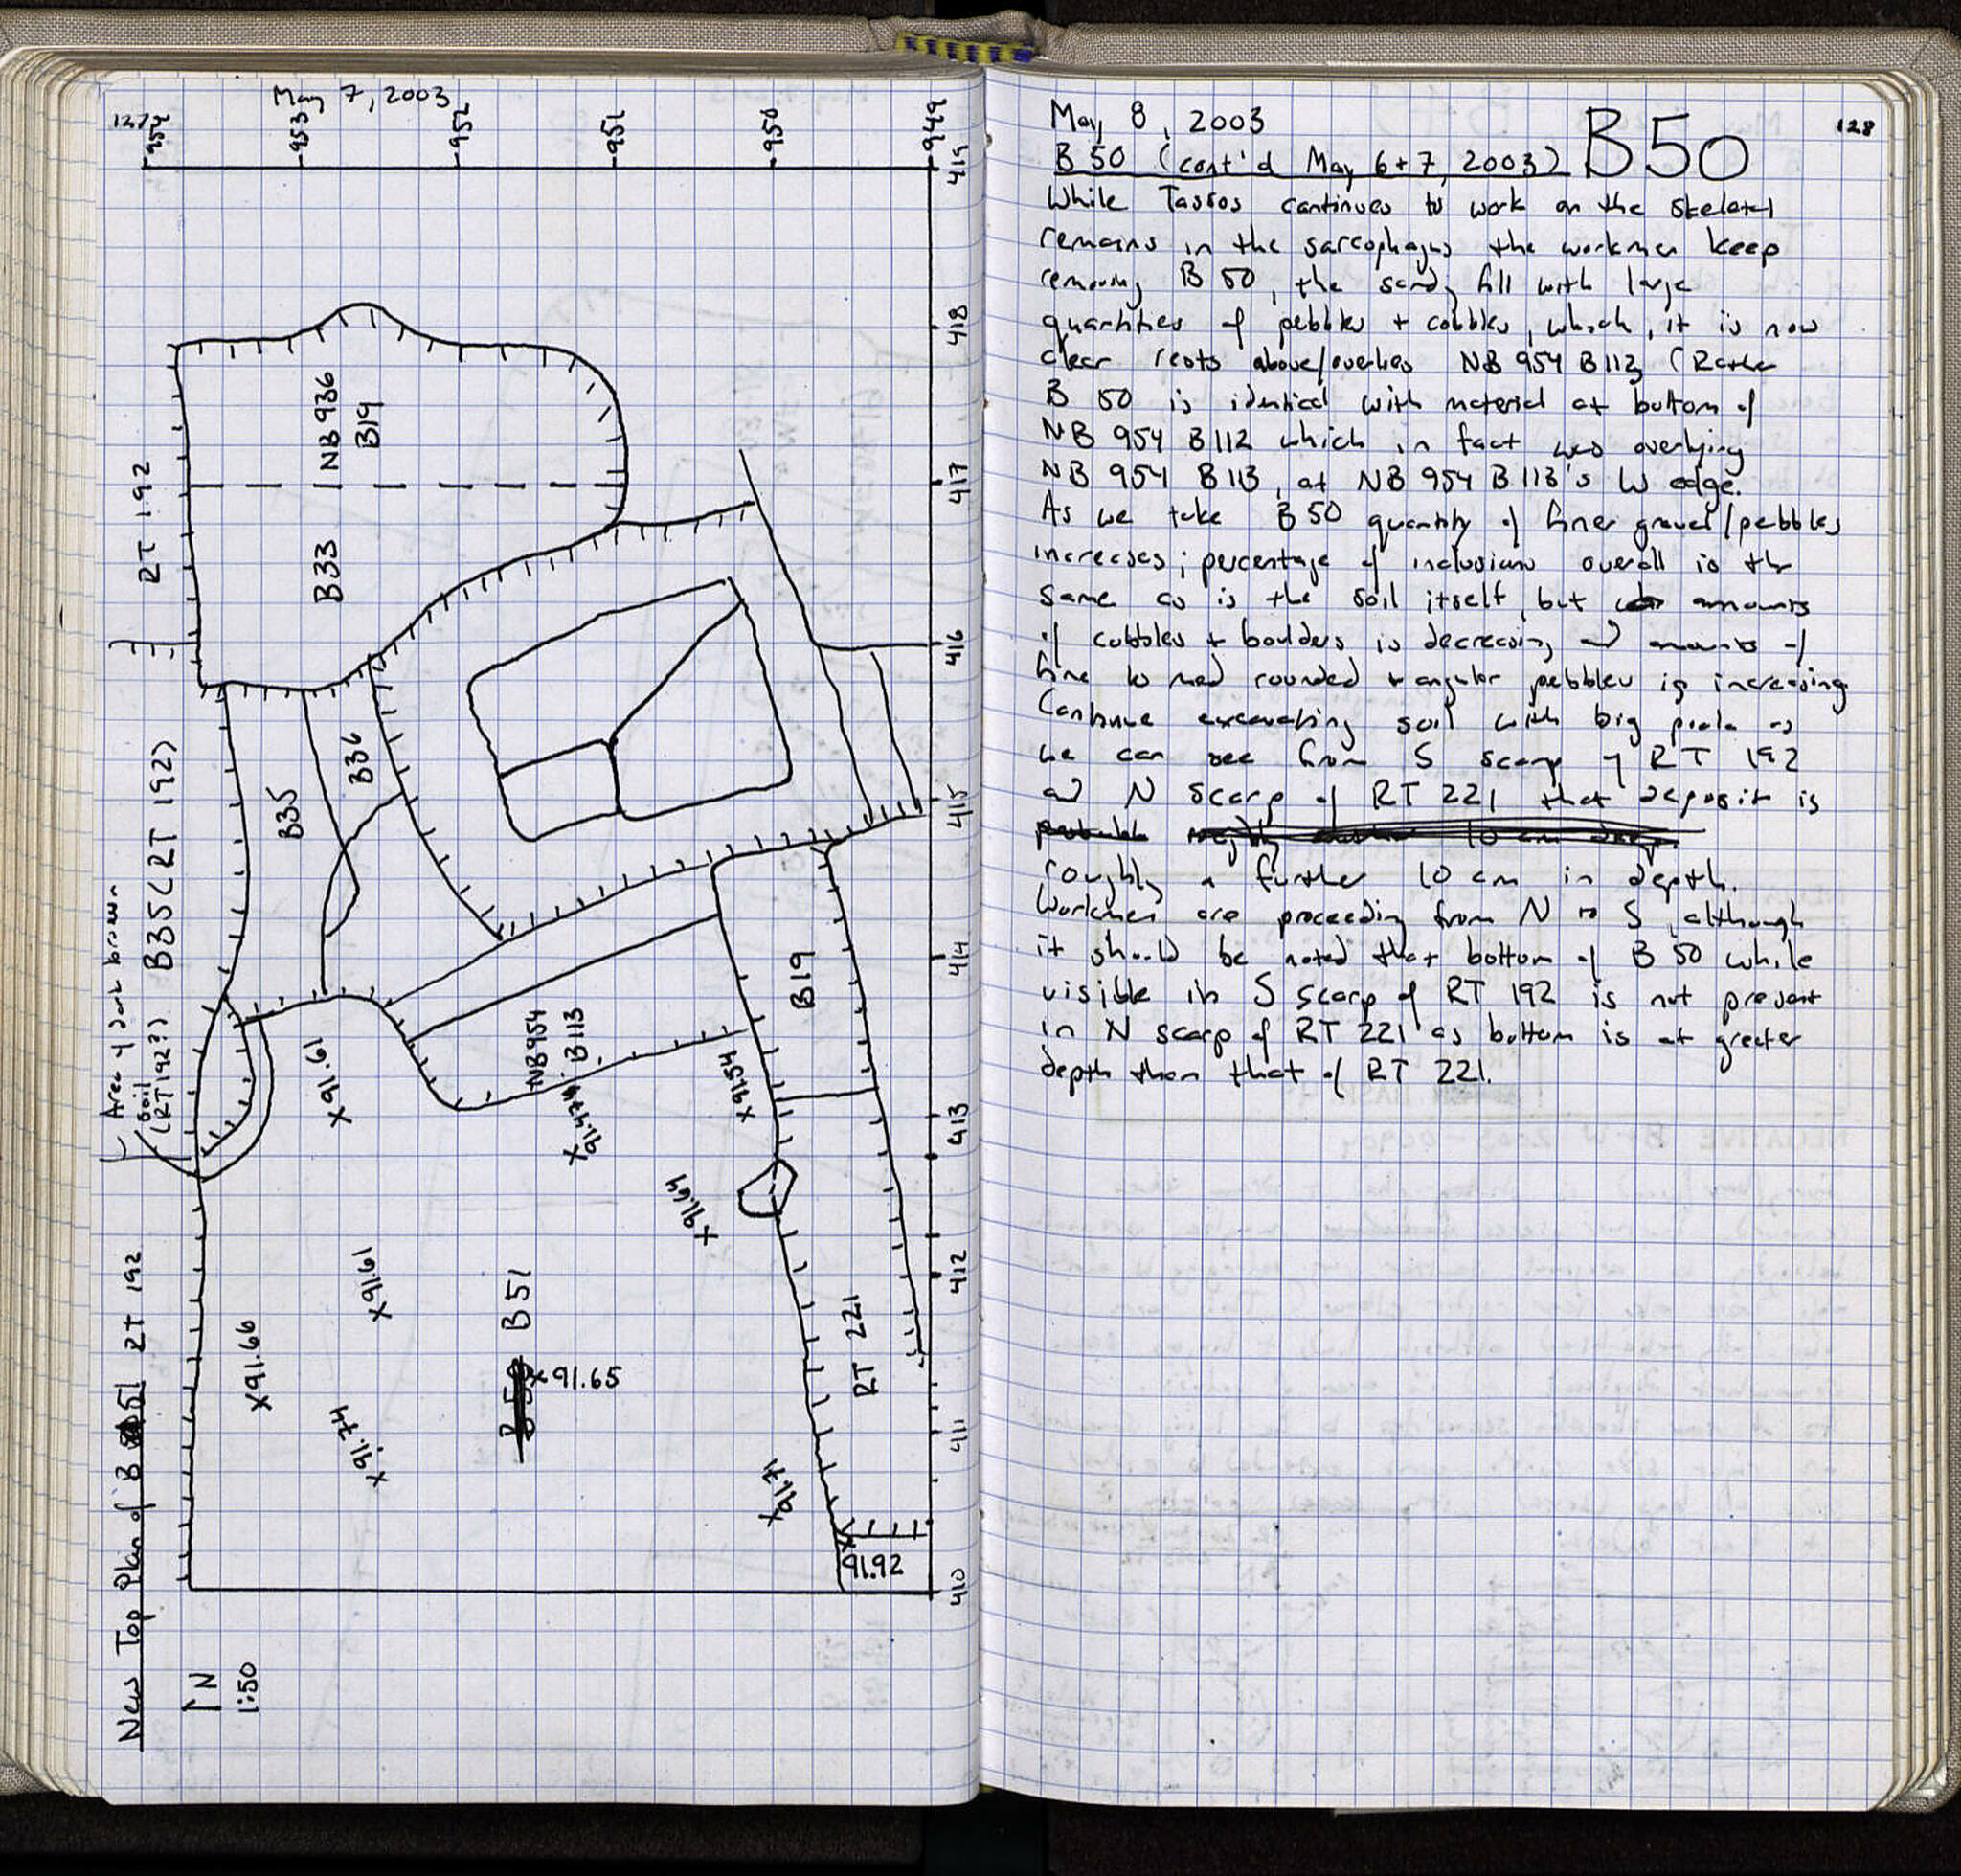 127
May 7, 2003
954
953
952
951
950
949
419
418
417
416
415
414
413
412
411
410
RT 192
NB 936
B19
B33
B36
B35
B35 (RT 192)
Area of dark brown
soil
(RT 192?)
X 91.61
NB 954
B113
X 91.54
B19
X 91.64
X 91.61
B 51
X 91.65
X 91.66
X 91.74
RT 221
X 91.71
X
91.92
New Top Plan of B 51 RT 192
N
1:50
May 8, 2003
128
B 50 (cont'd May 6+7, 2003)
B50
While Tassos continues to work on the skeletal
remains in the sarcophagus the workmen keep
removing B 50, the sandy fill with large
quantities of pebbles + cobbles, which, it is now
clear rests above/overlies NB 954 B 113 (Rather
B 50 is identical with material at bottom of
NB 954 B 112 which in fact was overlying
NB 954 B 113, at NB 954 B 113's W edge.
As we take B 50 quantity of finer gravel/pebbles
increases; percentage of inclusions overall is the
same as is the soil itself, but amounts
of cobbles + boulders is decreasing and amounts of
fine to med rounded + angular pebbles is increasing
Continue excavating soil with big picks as
we can see from S scarp of RT 192
and N scarp of RT 221 that deposit is
roughly a further 10 cm in depth.
Workmen are proceeding from N to S, although
it should be noted that bottom of B 50 while
visible in S scarp of RT 192 is not present
in N scarp of RT 221 as bottom is at greater
depth than that of RT 221.